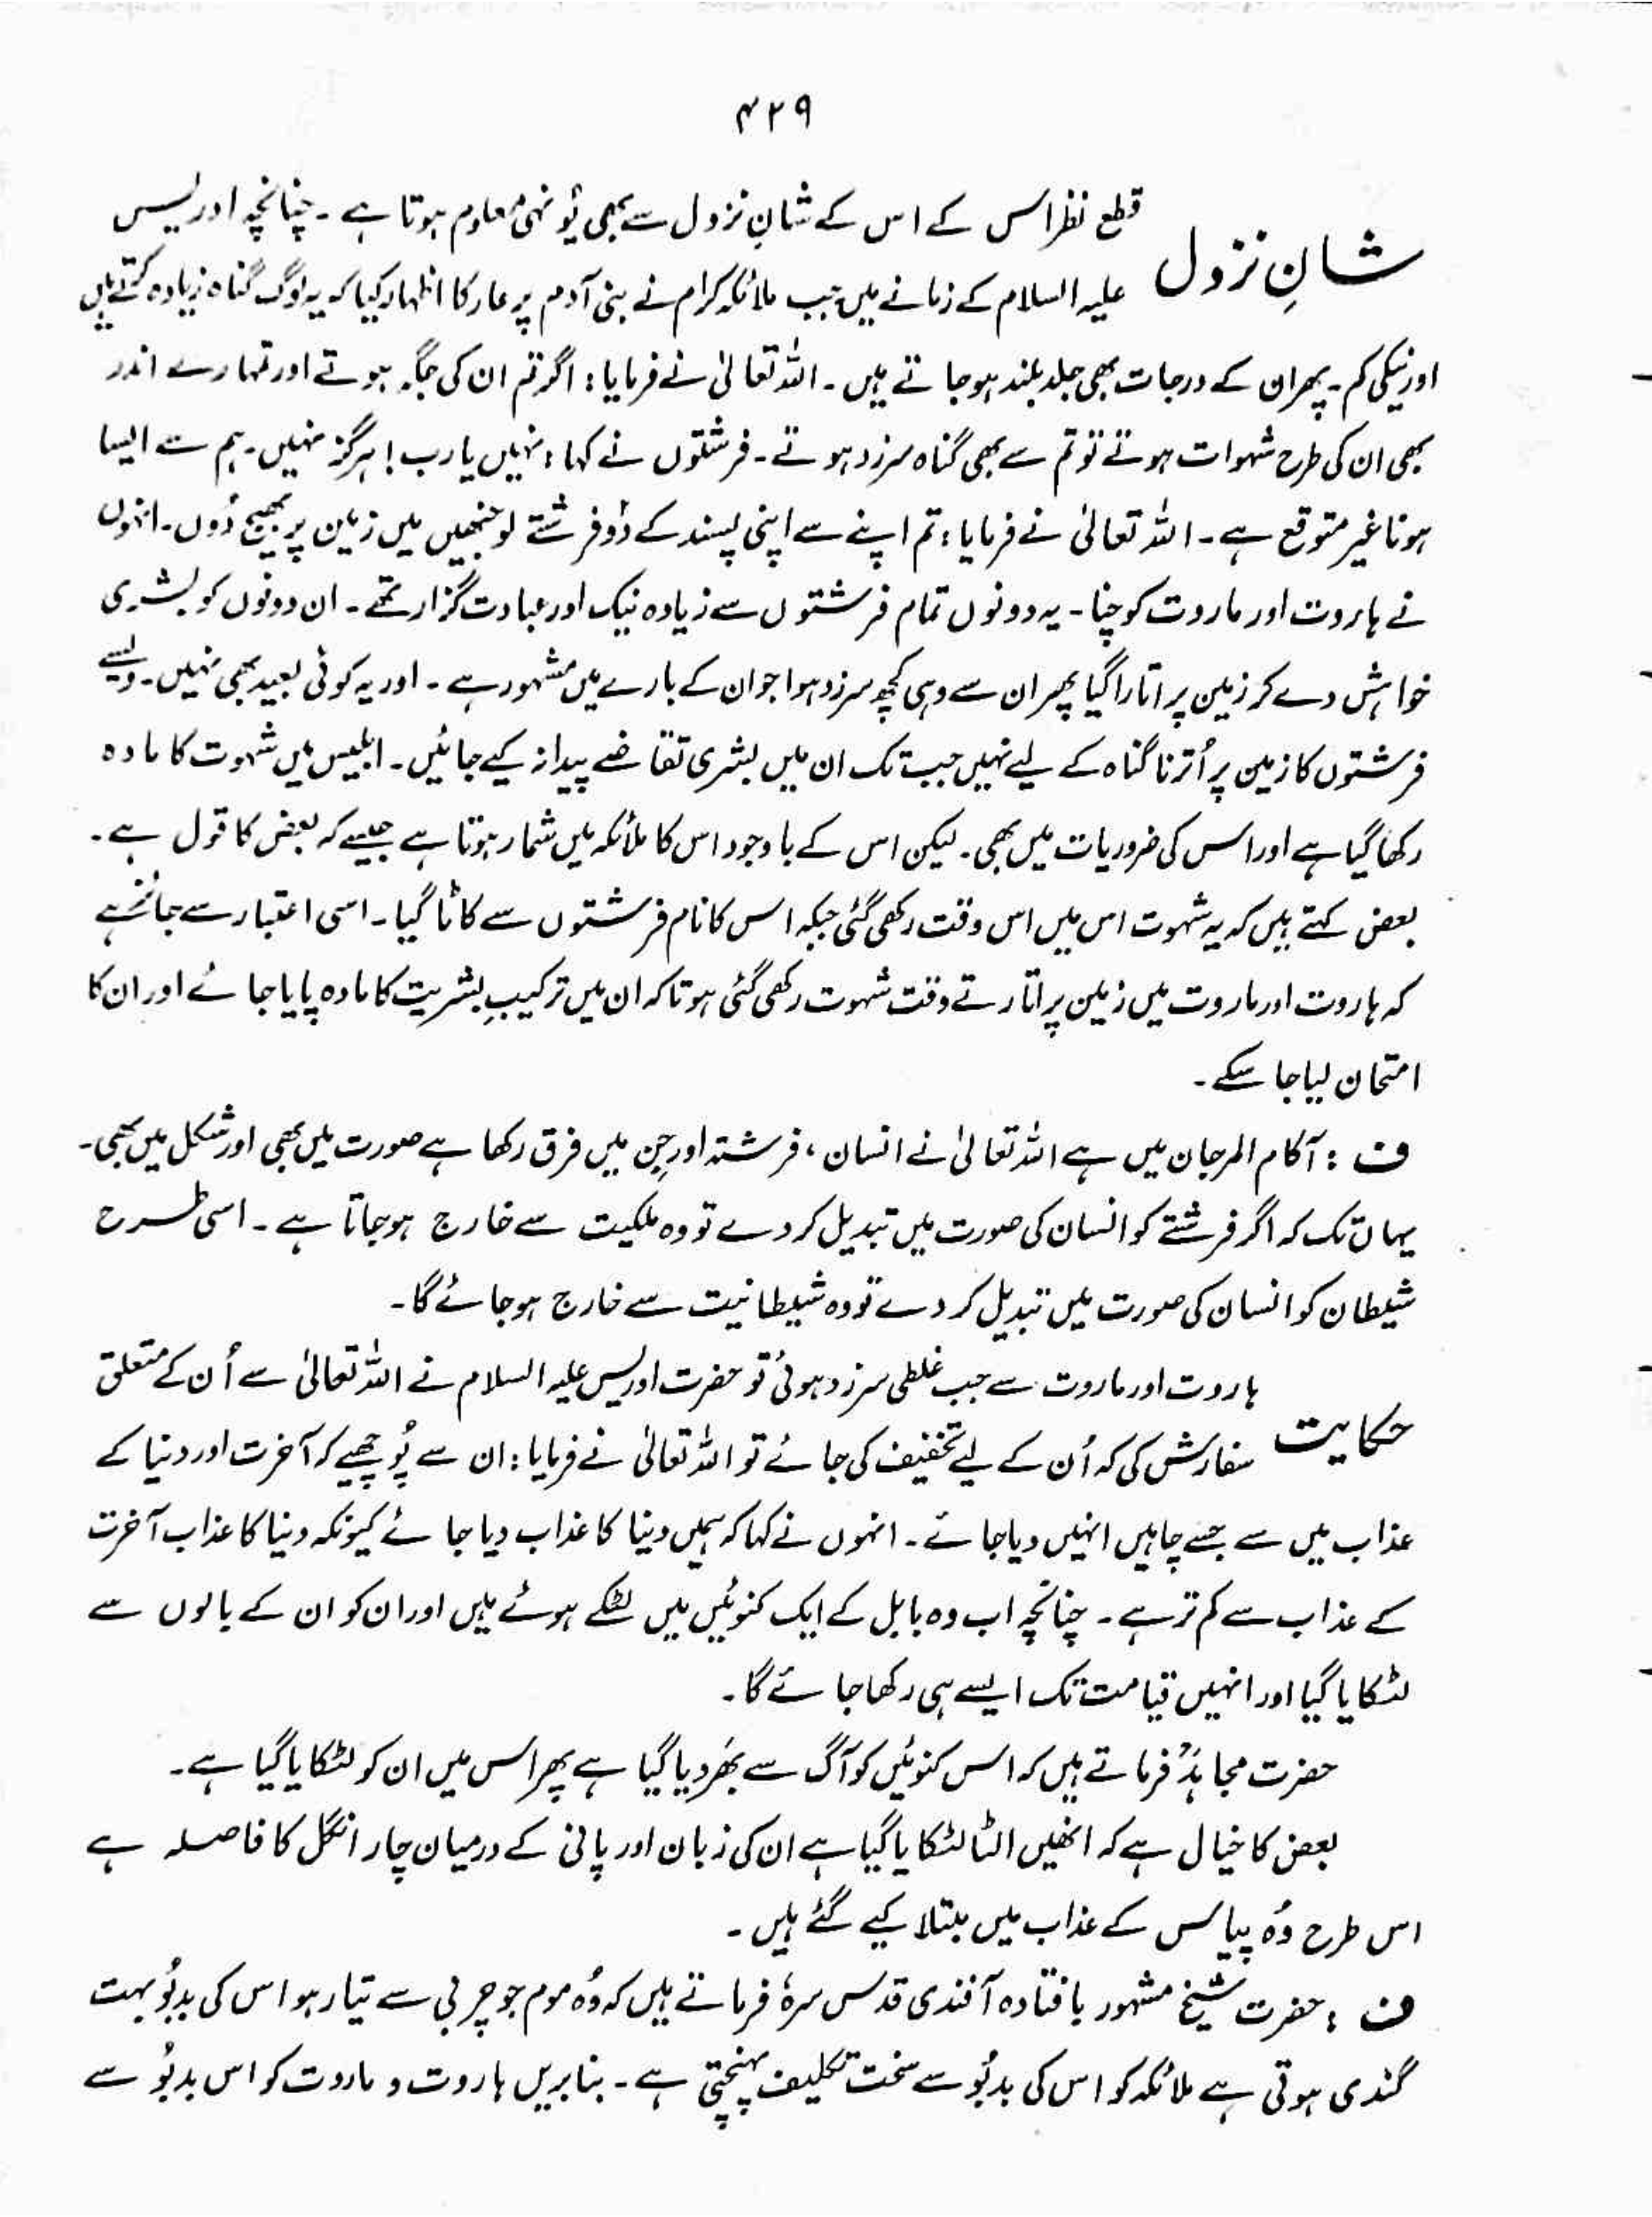 ۴۲۹
شانِ نزول
قطع نظر اس کے اس کے شانِ نزول سے بھی یُونہی معلوم ہوتا ہے ۔ چنانچہ ادریس
علیہ السلام کے زمانے میں جب ملائکہ کرام نے بنی آدم پر عار کا اظہار کیا کہ یہ لوگ گناہ زیادہ کرتے ہیں
اور نیکی کم ۔ پھر ان کے درجات بھی جلد بلند ہو جاتے ہیں ۔ اللہ تعالیٰ نے فرمایا : اگر تم ان کی جگہ ہوتے اور تمہارے اندر
بھی ان کی طرح شہوات ہوتے تو تم سے بھی گناہ سرزد ہوتے ۔ فرشتوں نے کہا : نہیں یا رب ! ہرگز نہیں ۔ ہم سے ایسا
ہونا غیر متوقع ہے ۔ اللہ تعالیٰ نے فرمایا : تم اپنے سے اپنی پسند کے دُو فرشتے لو جنھیں میں زمین پر بھیج دُوں ۔ انہوں
نے ہاروت اور ماروت کو چنا ۔ یہ دونوں تمام فرشتوں سے زیادہ نیک اور عبادت گزار تھے ۔ ان دونوں کو بشری
خواہش دے کر زمین پر اتارا گیا پھر ان سے وہی کچھ سرزد ہوا جو ان کے بارے میں مشہور ہے ۔ اور یہ کوئی بعید بھی نہیں ۔ ویسے
فرشتوں کا زمین پر اُترنا گناہ کے لیے نہیں جب تک ان میں بشری تقاضے پیدا نہ کیے جائیں ۔ ابلیس میں شہوت کا مادہ
رکھا گیا ہے اور اس کی ضروریات میں بھی ۔ لیکن اس کے باوجود اس کا ملائکہ میں شمار ہوتا ہے جیسے کہ بعض کا قول ہے ۔
بعض کہتے ہیں کہ یہ شہوت اس میں اس وقت رکھی گئی جبکہ اس کا نام فرشتوں سے کاٹا گیا ۔ اسی اعتبار سے جائز ہے
کہ ہاروت اور ماروت میں زمین پر اتارتے وقت شہوت رکھی گئی ہو تاکہ ان میں ترکیبِ بشریت کا مادہ پایا جائے اور ان کا
امتحان لیا جا سکے ۔
ف : آکام المرجان میں ہے اللہ تعالیٰ نے انسان ، فرشتہ اور جِن میں فرق رکھا ہے صورت میں بھی اور شکل میں بھی ۔
یہاں تک کہ اگر فرشتے کو انسان کی صورت میں تبدیل کر دے تو وہ ملکیت سے خارج ہو جاتا ہے ۔ اسی طرح
شیطان کو انسان کی صورت میں تبدیل کر دے تو وہ شیطانیت سے خارج ہو جائے گا ۔
حکایت
ہاروت اور ماروت سے جب غلطی سرزد ہوئی تو حضرت ادریس علیہ السلام نے اللہ تعالیٰ سے اُن کے متعلق
سفارش کی کہ اُن کے لیے تخفیف کی جائے تو اللہ تعالیٰ نے فرمایا : ان سے پُوچھیے کہ آخرت اور دنیا کے
عذاب میں سے جسے چاہیں انہیں دیا جائے ۔ انہوں نے کہا کہ ہمیں دنیا کا عذاب دیا جائے کیونکہ دنیا کا عذاب آخرت
کے عذاب سے کم تر ہے ۔ چنانچہ اب وہ بابل کے ایک کنوئیں میں لٹکے ہوئے ہیں اور ان کو ان کے بالوں سے
لٹکایا گیا اور انہیں قیامت تک ایسے ہی رکھا جائے گا ۔
حضرت مجاہدؒ فرماتے ہیں کہ اس کنوئیں کو آگ سے بھر دیا گیا ہے پھر اس میں ان کو لٹکایا گیا ہے ۔
بعض کا خیال ہے کہ انھیں الٹا لٹکایا گیا ہے ان کی زبان اور پانی کے درمیان چار انگل کا فاصلہ ہے
اس طرح وُہ پیاس کے عذاب میں مبتلا کیے گئے ہیں ۔
ف : حضرت شیخ مشہور بافتادہ آفندی قدس سرہٗ فرماتے ہیں کہ وُہ موم جو چربی سے تیار ہو اس کی بدبُو بہت
گندی ہوتی ہے ملائکہ کو اس کی بدبُو سے سخت تکلیف پہنچتی ہے ۔ بنا بریں ہاروت و ماروت کو اس بدبُو سے